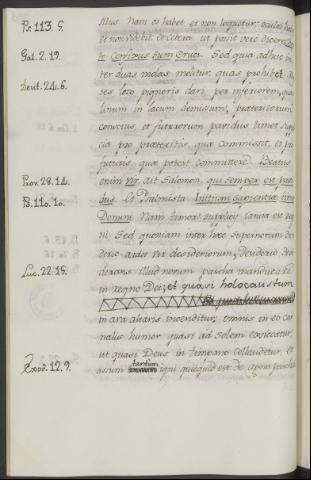 Ps. 113. 5.
Gal. 2. 19.
Deut. 24. 6.
Prov. 28. 14.
Ps. 110. 10.
Luc. 22. 15.
Exod. 12. 9.
illius. Nam os habet et non loquetur; oculos
et non videbit et cetera ut possit vere dicere
to Confixus sum Cruci. Sed quia adhuc in
ter duas molas molitur, quas prohibet
ses loco pignoris dari per inferiorem,
linum in lacum demissum, praeteritorum
convictus, et futurorum pavidus timet
cia pro praeteritis, quae commissit, et pro
futuris, quae poterit committere. Beatus
enim Vir, ait Salomon, qui semper est pavi
dus. et Psalmista Initium sapientiae timor
Domini. Nam timor supplicij
ni. Sed quoniam inter haec supernorum de
siderio ardet Vir desideriorum, desiderio desi
derans illud novum pascha manducare
in regno Dei; et quasi holocaustum
in ara altaris incenditur, omnis in eo car
nalis humor quasi ad solem exsiccatur,
ut quasi Deus in timpano collaudetur, et
assum tantum igni quidquid est de agno paschali